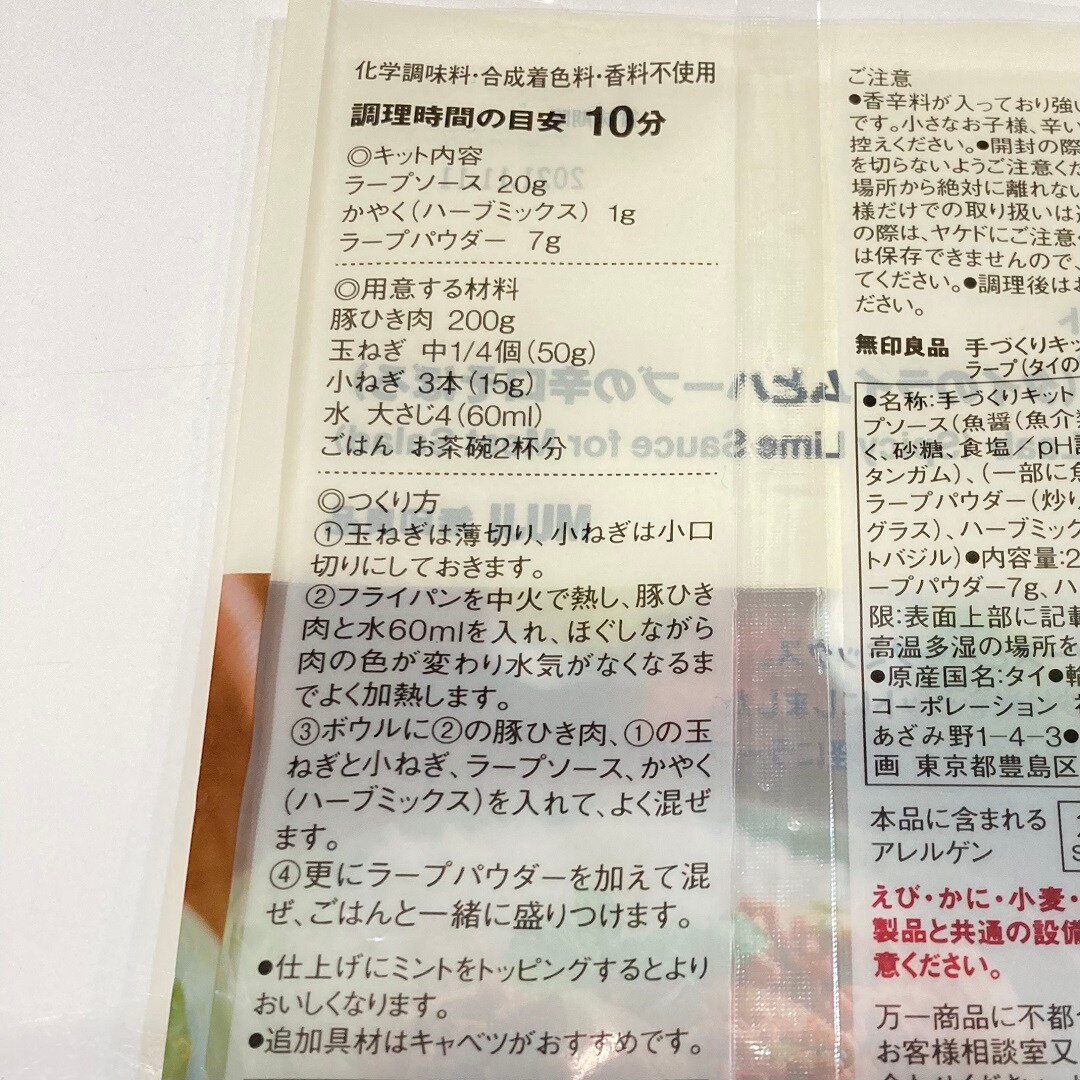 化学調味料・合成着色料・香料不使用
調理時間の目安 10分
◎キット内容
ラープソース 20g
かやく(ハーブミックス) 1g
ラープパウダー 7g
◎用意する材料
豚ひき肉 200g
玉ねぎ 中1/4個(50g)
小ねぎ 3本(15g)
水 大さじ4(60ml)
ごはん お茶碗2杯分
◎つくり方
①玉ねぎは薄切り、小ねぎは小口
切りにしておきます。
②フライパンを中火で熱し、豚ひき
肉と水60mlを入れ、ほぐしながら
肉の色が変わり水気がなくなるま
でよく加熱します。
③ボウルに②の豚ひき肉、①の玉
ねぎと小ねぎ、ラープソース、かやく
(ハーブミックス)を入れて、よく混ぜ
ます。
④更にラープパウダーを加えて混
ぜ、ごはんと一緒に盛りつけます。
●仕上げにミントをトッピングするとより
おいしくなります。
●追加具材はキャベツがおすすめです。
ご注意
●香辛料が入っており強い
です。小さなお子様、辛い
控えください。●開封の際
を切らないようご注意くだ
場所から絶対に離れない
様だけでの取り扱いは
の際は、ヤケドにご注意
は保存できませんので、
てください。●調理後はお
ださい。
無印良品 手づくりキッ
ラープ(タイの
●名称:手づくりキット
プソース(魚醤(魚介
く、砂糖、食塩/pH
タンガム)、(一部に魚
ラープパウダー(炒り
グラス)、ハーブミック
トバジル)●内容量:2
ープパウダー7g、ハ
限:表面上部に記載
高温多湿の場所を
●原産国名:タイ●輸
コーポレーション
あざみ野1-4-3●
画 東京都豊島区
本品に含まれる
アレルゲン
えび・かに・小麦・
製品と共通の設備
意ください。
万一商品に不都
お客様相談室又